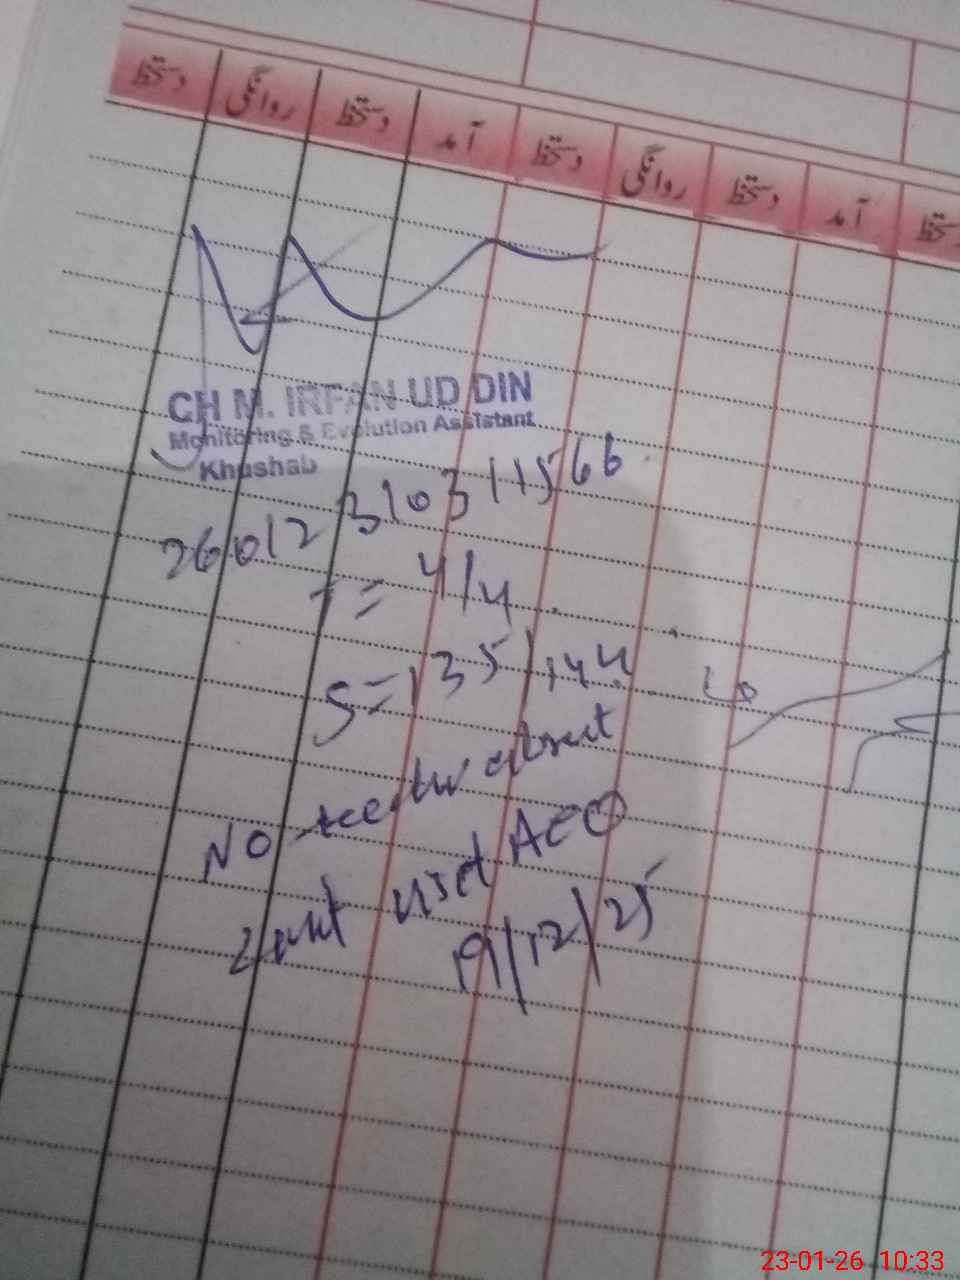 دستخط روانگی دستخط آمد دستخط روانگی دستخط آمد
CH M. IRFAN UD DIN
Monitoring & Evolution Assistant
Khushab
26012310311566
T = 4/4
S = 135/144
No teacher absent
Last visit AEO
19/12/25
23-01-26 10:33